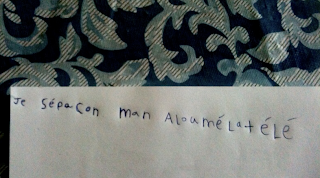 Je sépaçon man Aloumé La télé